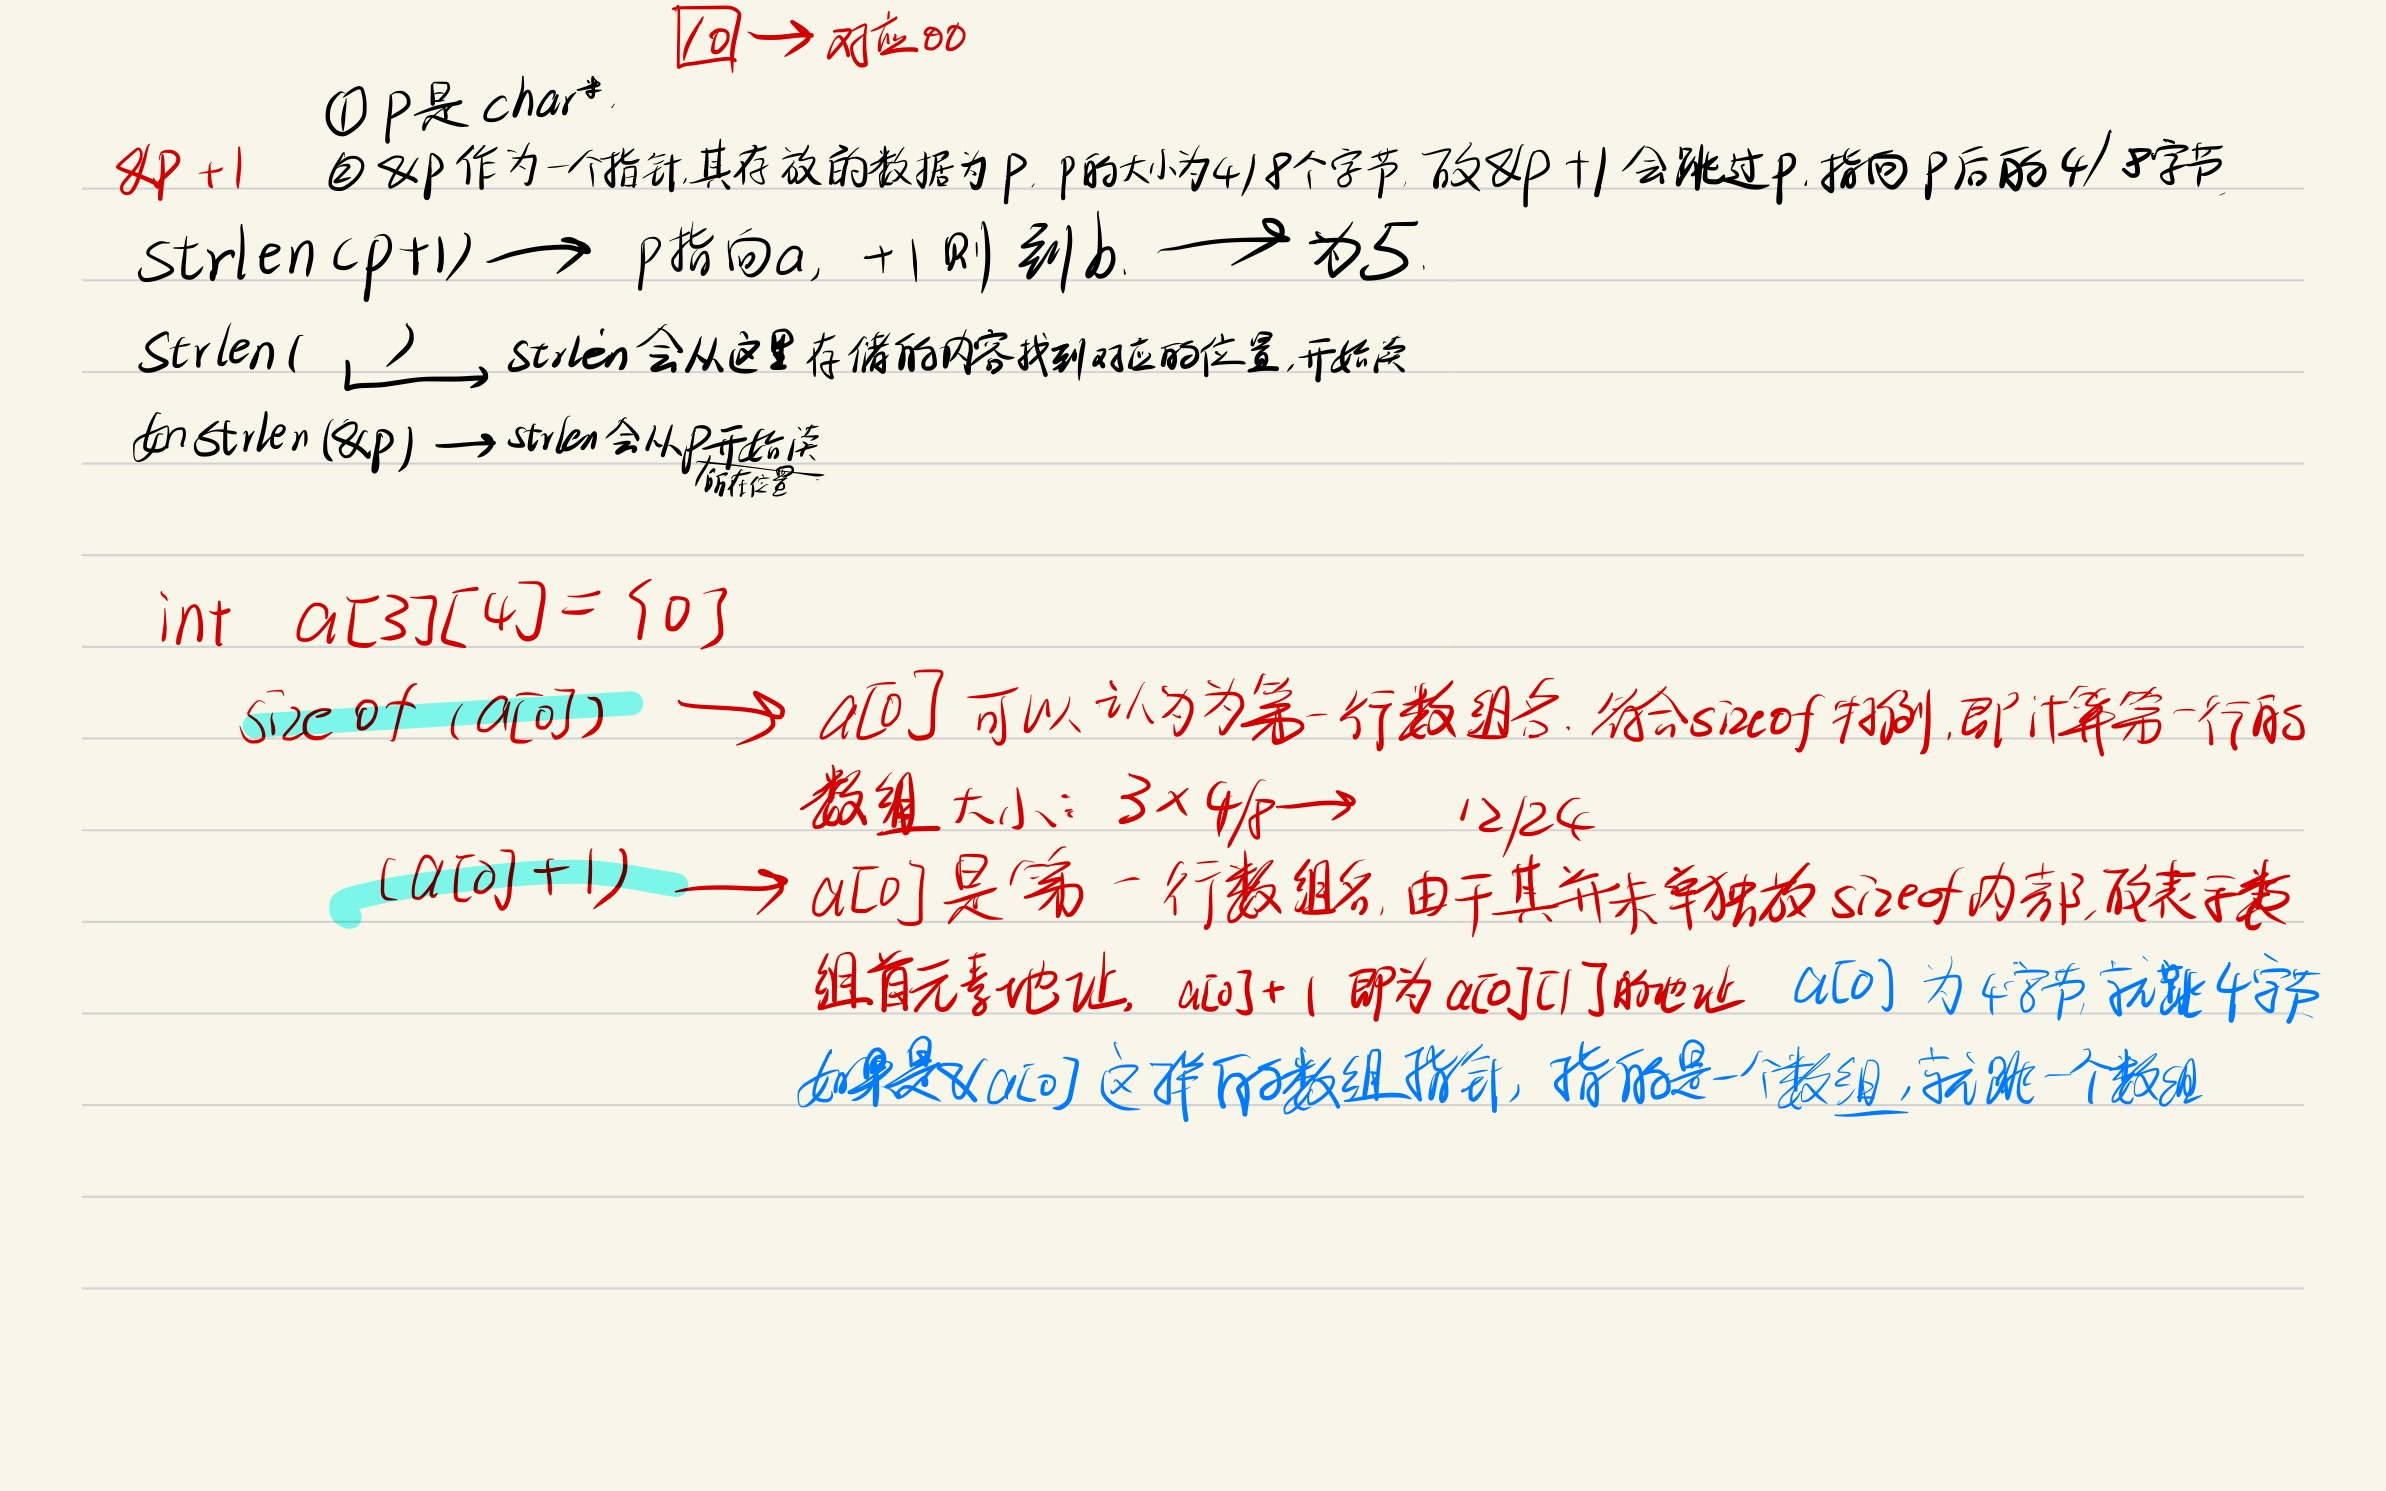 /0 → 对应00
① p是 char*.
&p+1 ② &p作为一个指针,其存放的数据为p. p的大小为4/8个字节, 故&p+1会跳过p,指向p后的4/8字节.
strlen(p+1) → p指向a, +1则到b. → 为5.
strlen( ) → strlen会从这里存储的内容找到对应的位置,开始读
如strlen(&p) → strlen会从p开始读
所在位置
int a[3][4]={0}
sizeof(a[0]) → a[0]可以认为为第一行数组名.符合sizeof特例,即计算第一行的
数组大小: 3×4/8 → 12/24
(a[0]+1) → a[0]是第一行数组名,由于其并未单独放sizeof内部,故表示数
组首元素地址, a[0]+1即为a[0][1]的地址 a[0]为4字节,就跳4字节
如果是&a[0]这样的数组指针, 指的是一个数组,就跳一个数组